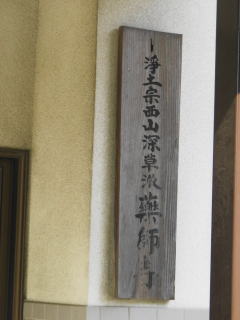 浄土宗西山深草派薬師寺